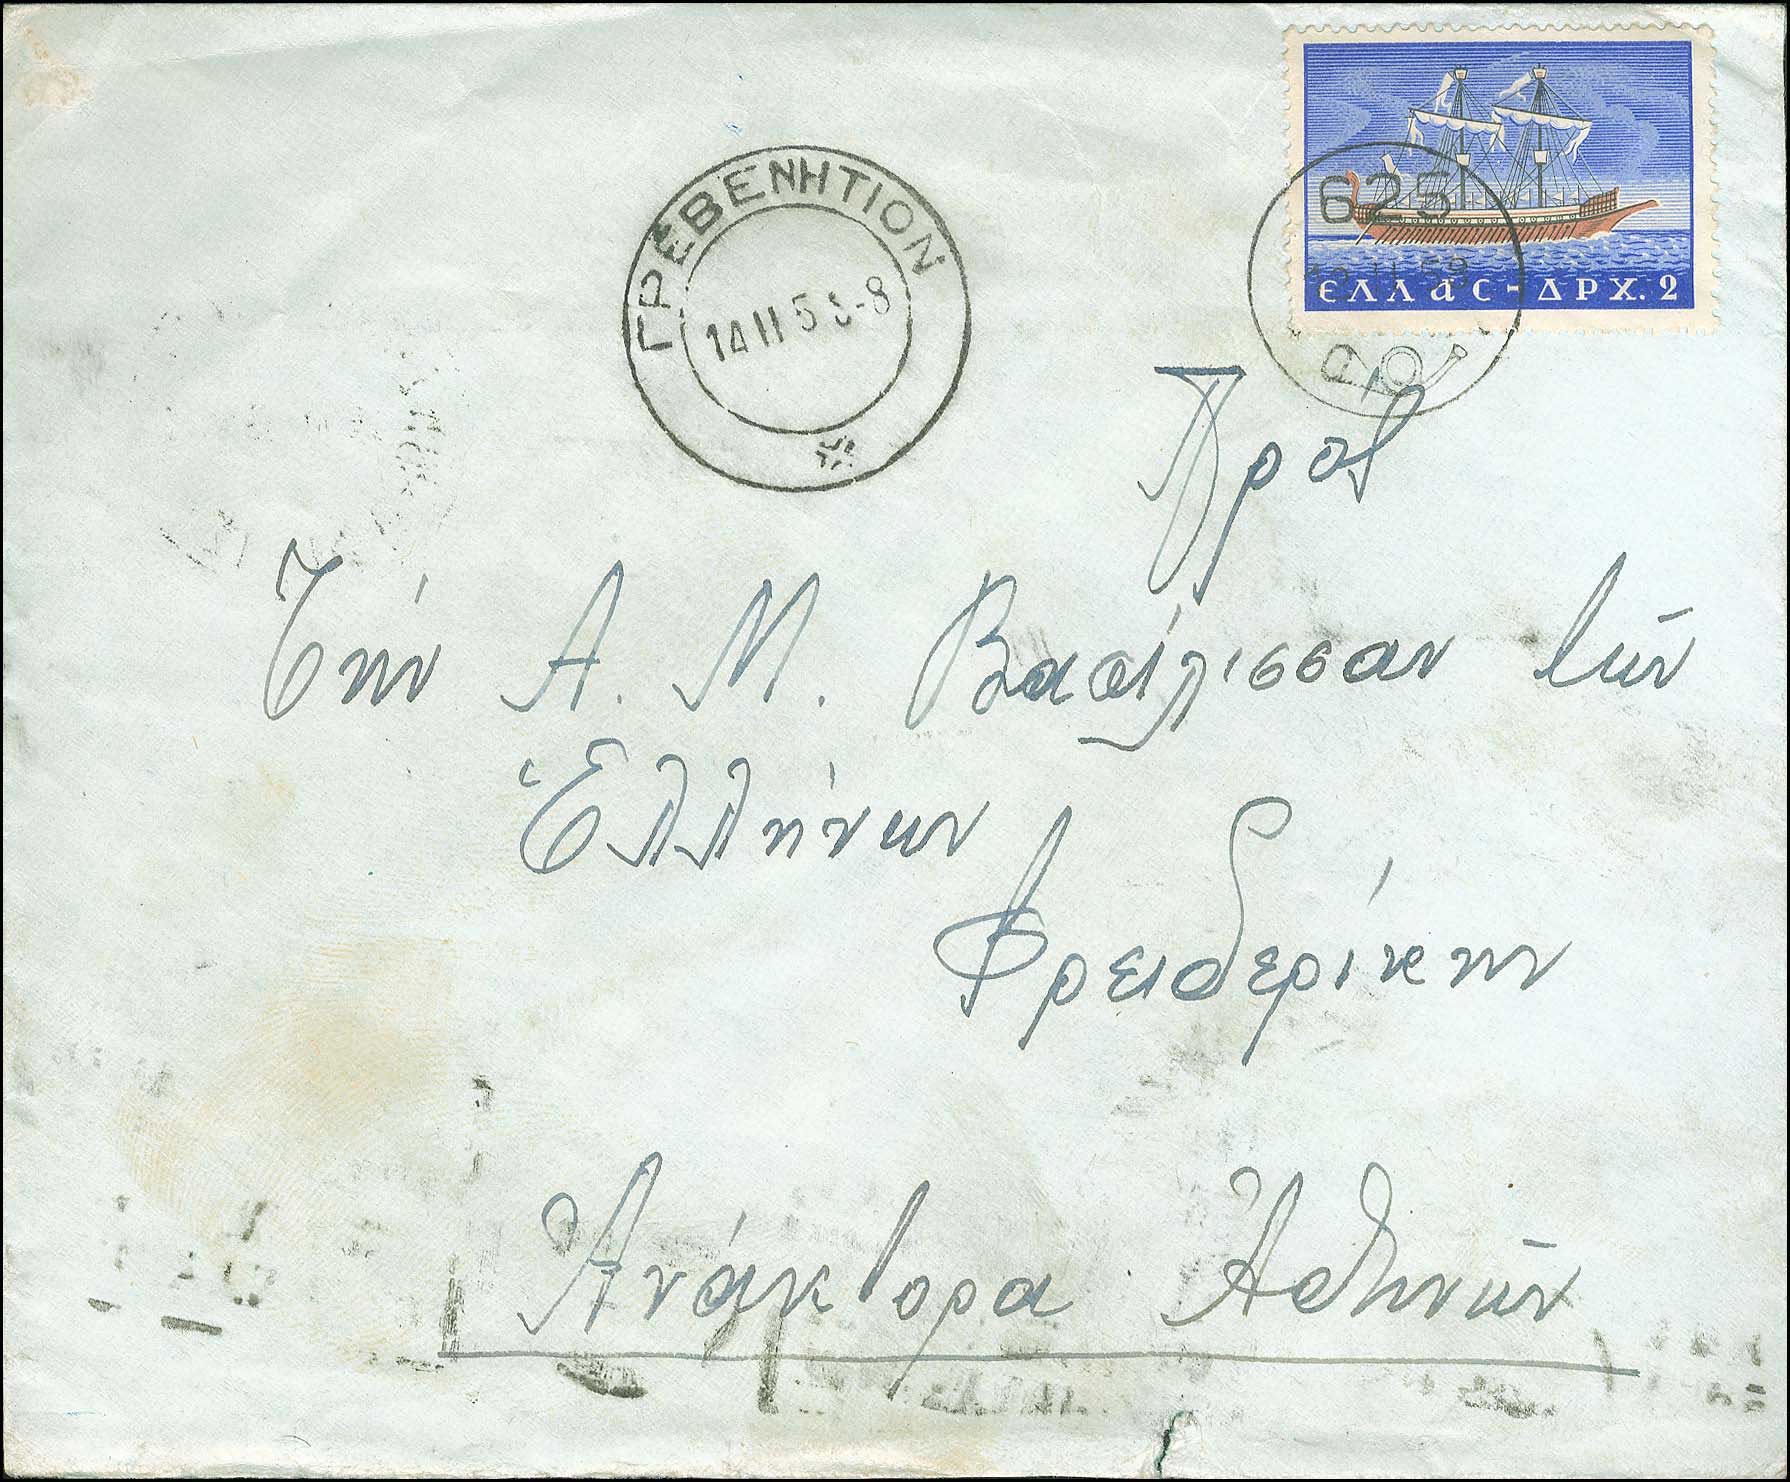 ΕΛΛΑΣ-ΔΡΧ.2
625
ΓΡΕΒΕΝΗΤΙΟΝ
14 II 5
-8
Πρὸς
Τήν Α. Μ. Βασίλισσαν τῶν
Ἑλλήνων
Φρειδερίκην
Ἀνάκτορα Ἀθηνῶν